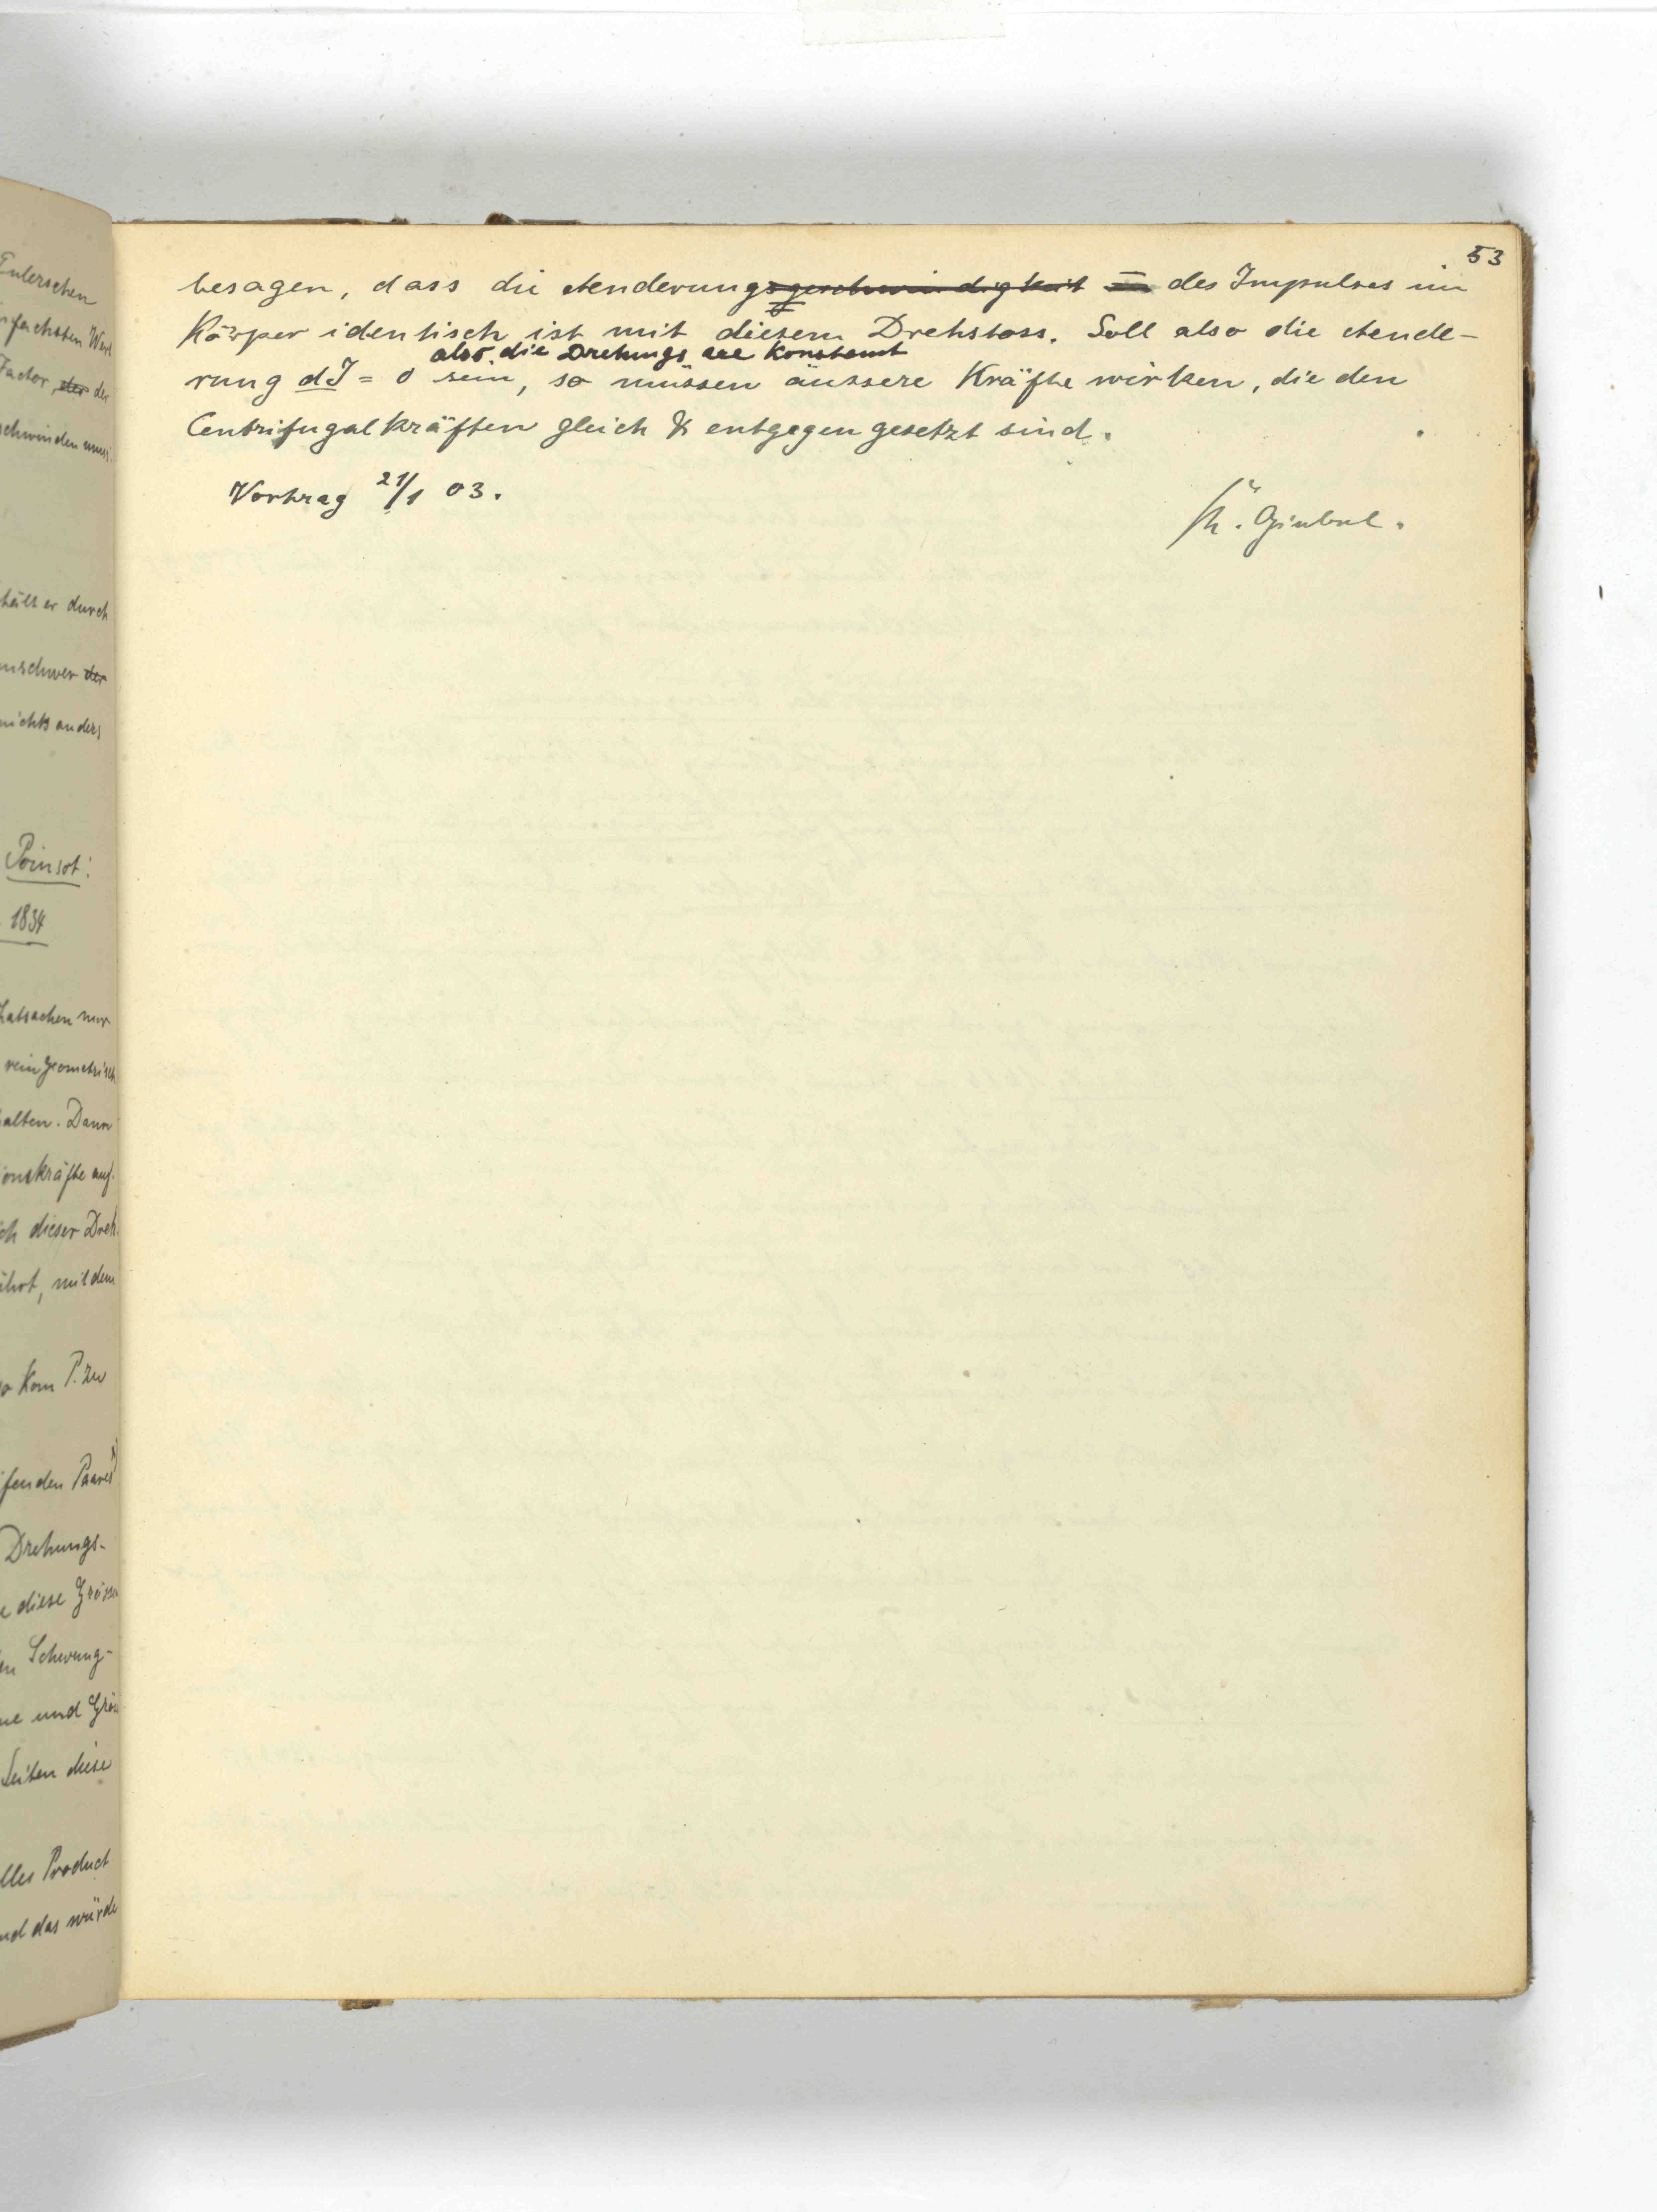 Eulerschen
fachsten Wert
Factor, der der
schwinden muss.
hält er durch
nschwer der
nichts anders
Poinsot:
1834
hatsachen nur
rein geometrisch
alten. Dann
onskräfte auf.
ch dieser Dreh-
ihrt, mit dem
o kam P. zu
fenden Paares
Drehungs-
e diese Grösse
en Schwung-
ne und Gröss
Seiten diese
lles Product
nd das würde
53
besagen, dass die Aenderungsgeschwindigkeit des Impulses im
Körper identisch ist mit diesem Drehstoss. Soll also die Aende-
also die Drehungs axe konstant
rung dJ = 0 sein, so müssen äussere Kräfte wirken, die den
Centrifugalkräften gleich & entgegengesetzt sind.
Vortrag 21/1 03.